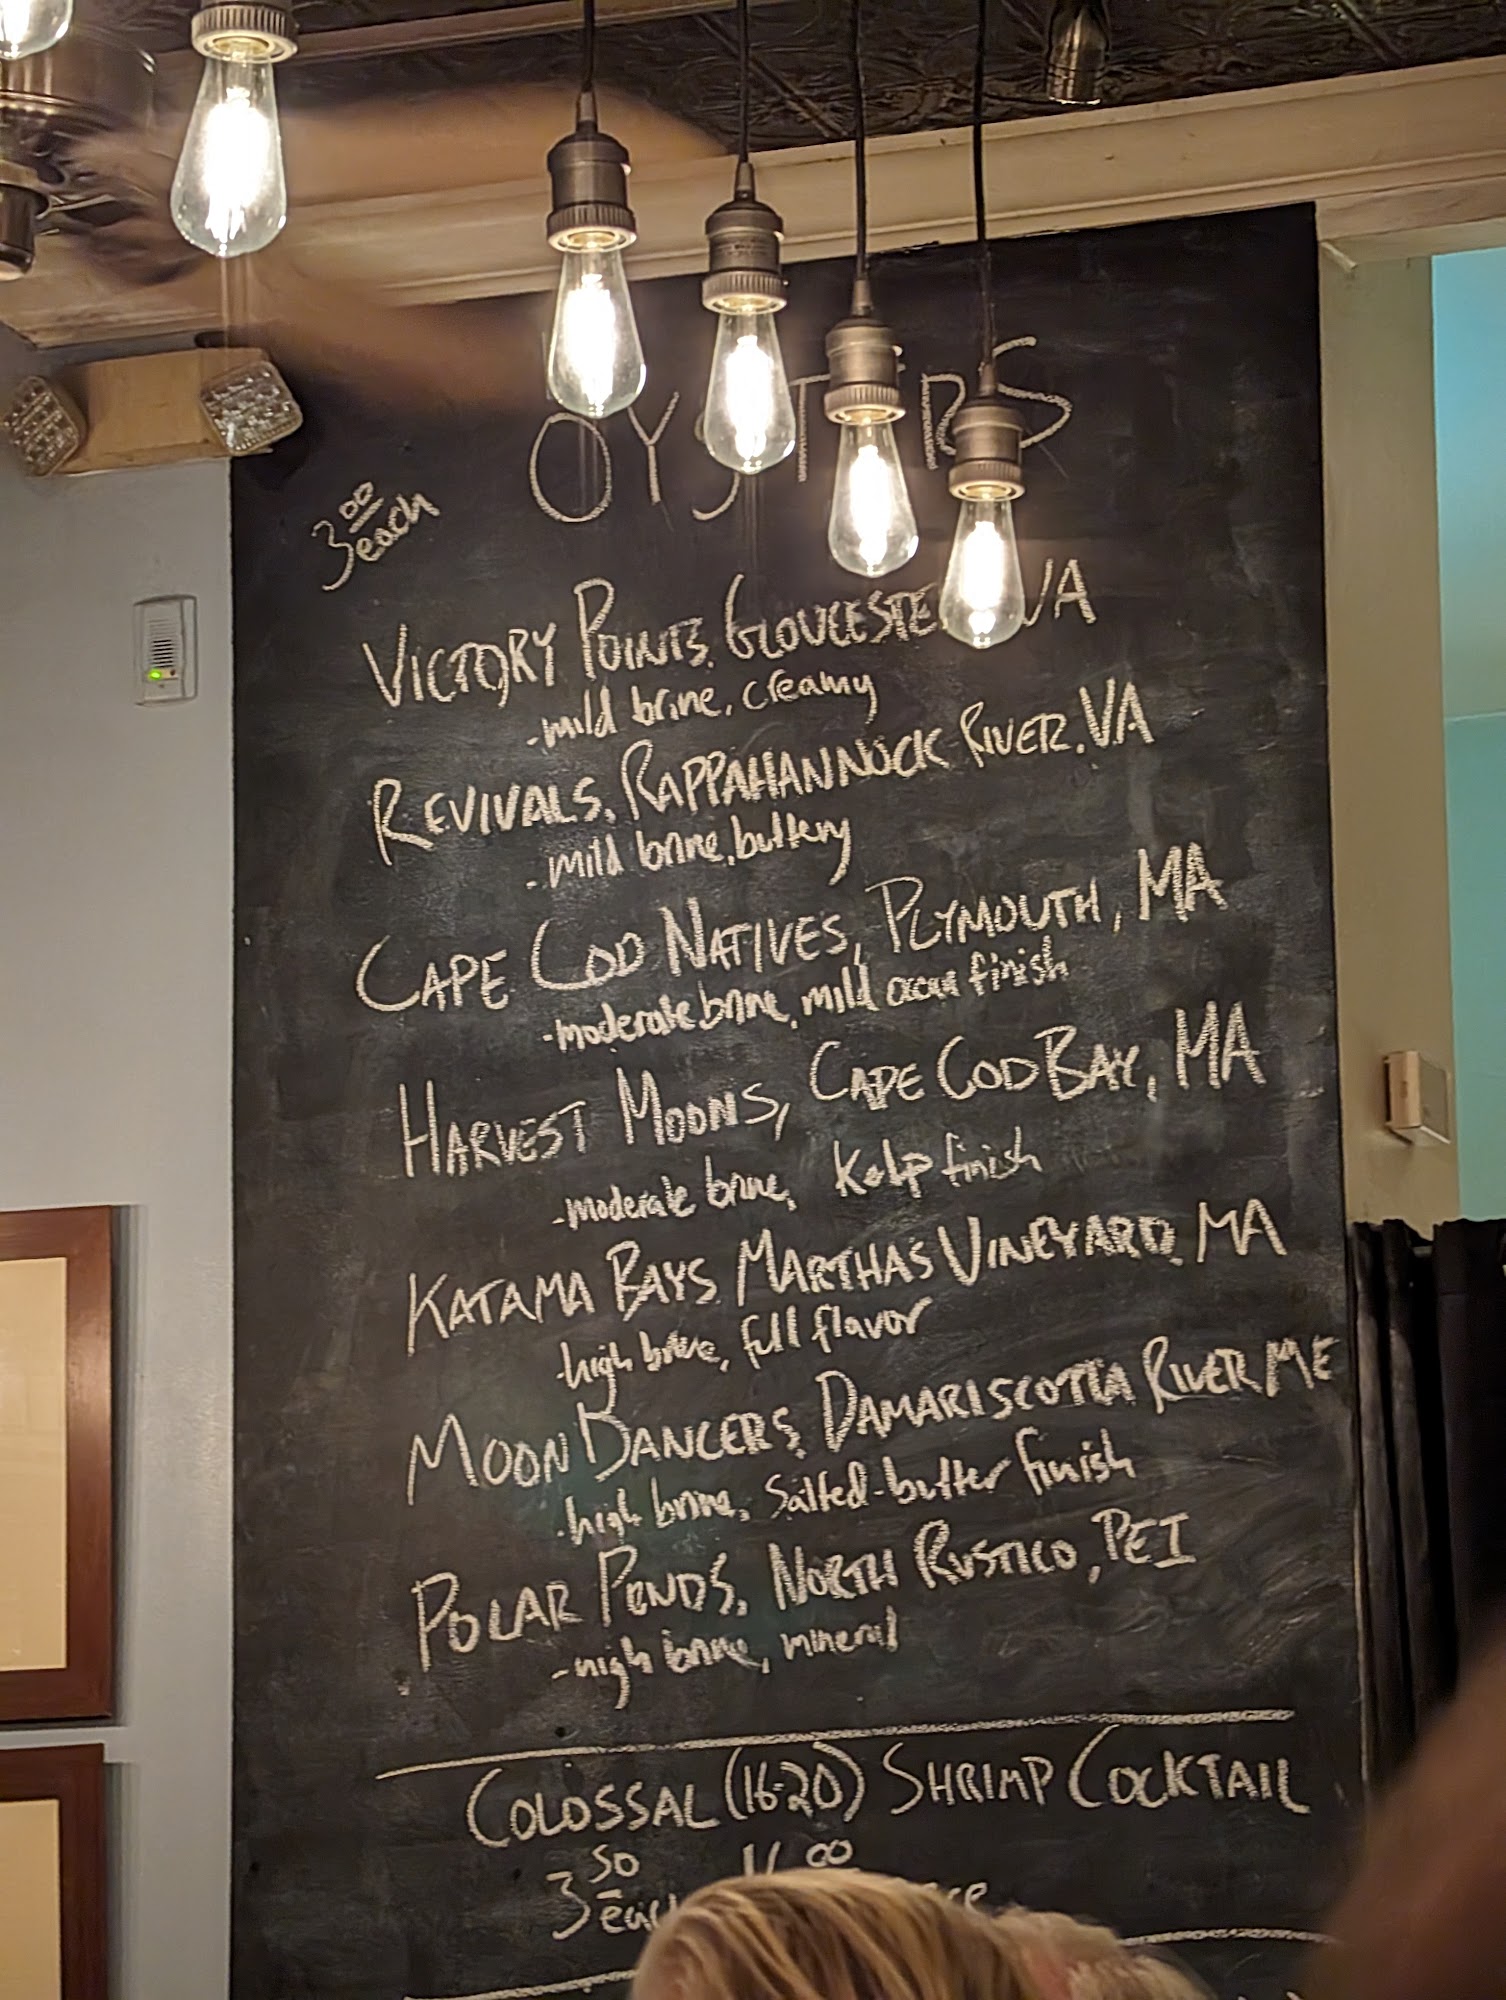 OYSTERS
3.00 each
VICTORY POINTS, GLOUCESTER, VA
- mild brine, creamy
REVIVALS, RAPPAHANNOCK RIVER, VA
- mild brine, buttery
CAPE COD NATIVES, PLYMOUTH, MA
- moderate brine, mild ocean finish
HARVEST MOONS, CAPE COD BAY, MA
- moderate brine, kelp finish
KATAMA BAYS, MARTHA'S VINEYARD, MA
- high brine, full flavor
MOON DANCERS, DAMARISCOTTA RIVER, ME
- high brine, salted-butter finish
POLAR PONDS, NORTH RUSTICO, PEI
- high brine, mineral
COLOSSAL (16-20) SHRIMP COCKTAIL
3.50 each 16.00